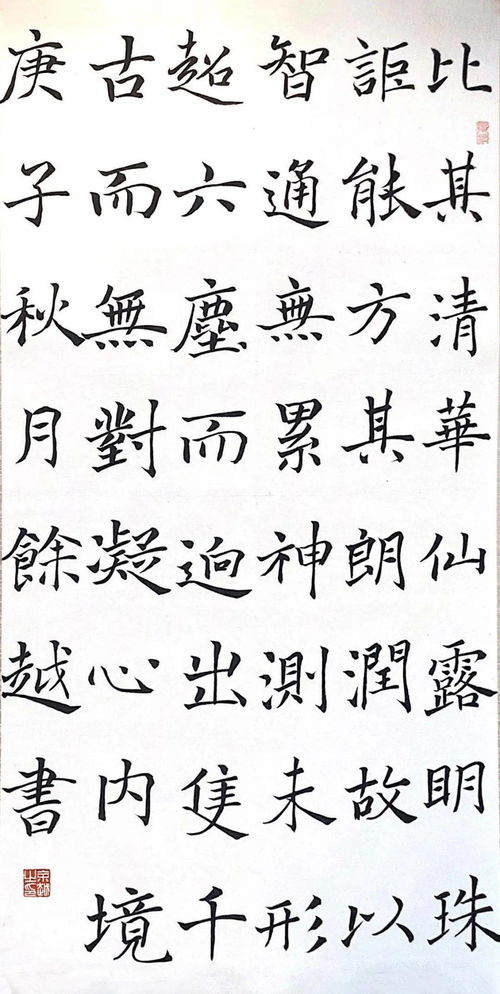 比其清華仙露明珠
詎能方其朗潤故以
智通無累神測未形
超六塵而逈出隻千
古而無對凝心內境
庚子秋月餘越書